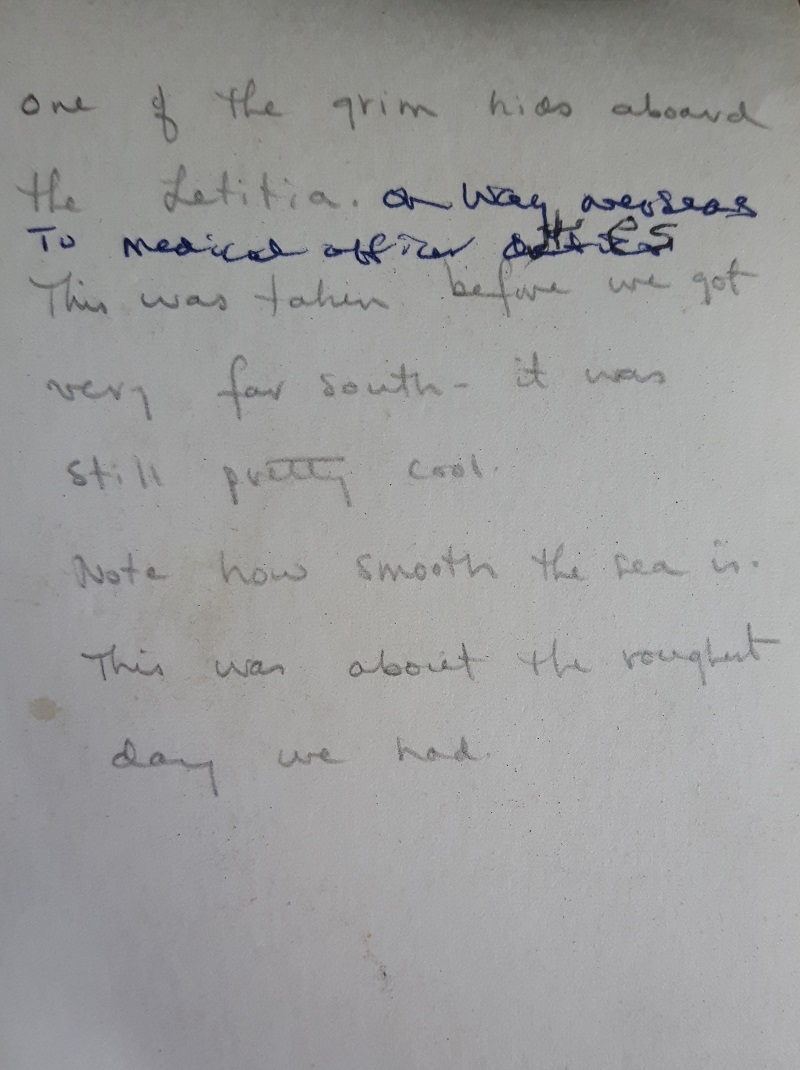 one of the grim kids aboard
the Letitia. on way overseas
To medical officer duties
This was taken before we got
very far south - it was
still pretty cool.
Note how smooth the sea is.
This was about the roughest
day we had.